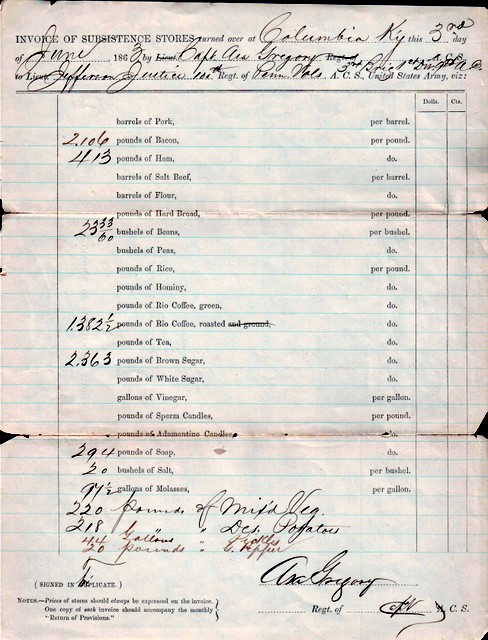 INVOICE OF SUBSISTENCE STORES turned over at Columbia Ky this 3nd day
of June 1863 by Lieut. Capt Asa Gregory Reg't of A. C. S.
to Lieut. Jefferson Justice 100th Regt. of Penn Vols A. C. S., United States Army, viz:
Dolls. Cts.
barrels of Pork, per barrel.
2.106 pounds of Bacon, per pound.
413 pounds of Ham, do.
barrels of Salt Beef, per barrel.
barrels of Flour, do.
pounds of Hard Bread, per pound.
23 33/60 bushels of Beans, per bushel.
bushels of Peas, do.
pounds of Rice, per pound.
pounds of Hominy, do.
pounds of Rio Coffee, green, do.
1.382 1/2 pounds of Rio Coffee, roasted and ground, do.
pounds of Tea, do.
2.363 pounds of Brown Sugar, do.
pounds of White Sugar, do.
gallons of Vinegar, per gallon.
pounds of Sperm Candles, per pound.
pounds of Adamantine Candles, do.
294 pounds of Soap, do.
20 bushels of Salt, per bushel.
97 1/2 gallons of Molasses, per gallon.
220 pounds of Mix'd Veg.
218 " " Des. Potatoes
44 Gallons " Pickles
20 pounds " Pepper
(SIGNED IN PLICATE.)
Asa Gregory
Regt. of A. C. S.
NOTES.—Prices of stores should always be expressed on the invoice.
One copy of each invoice should accompany the monthly
"Return of Provisions."